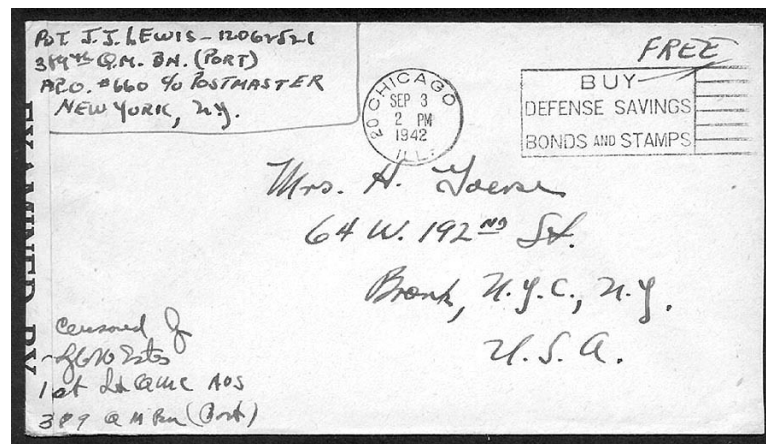 PVT J. J. LEWIS - 12062521
389TH Q.M. BN. (PORT)
A.P.O. #660 c/o POSTMASTER
NEW YORK, N.Y.
FREE
CHICAGO
SEP 3
2 PM
1942
20
ILL.
BUY
DEFENSE SAVINGS
BONDS AND STAMPS
Mrs. H.
64 W. 192ND St.
Bronx, N.Y.C., N.Y.
U.S.A.
EXAMINED BY
Censored by
Estes
1st Lt QMC AUS
389 QM Bn (Port)